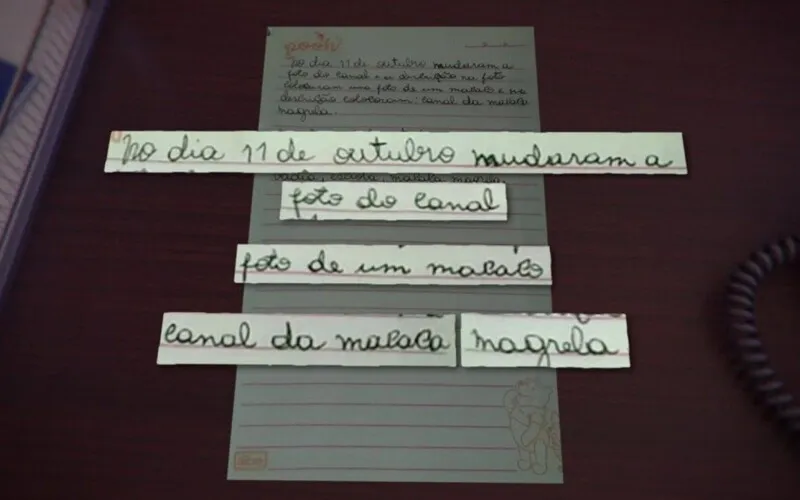 pooh
No dia 11 de outubro mudaram a
foto do canal e a descrição na foto
colocaram uma foto de um macaco e na
descrição colocaram: canal da macaca
magrela.
No dia 11 de outubro mudaram a
macaca magrela
foto do canal
foto de um macaco
canal da macaca magrela